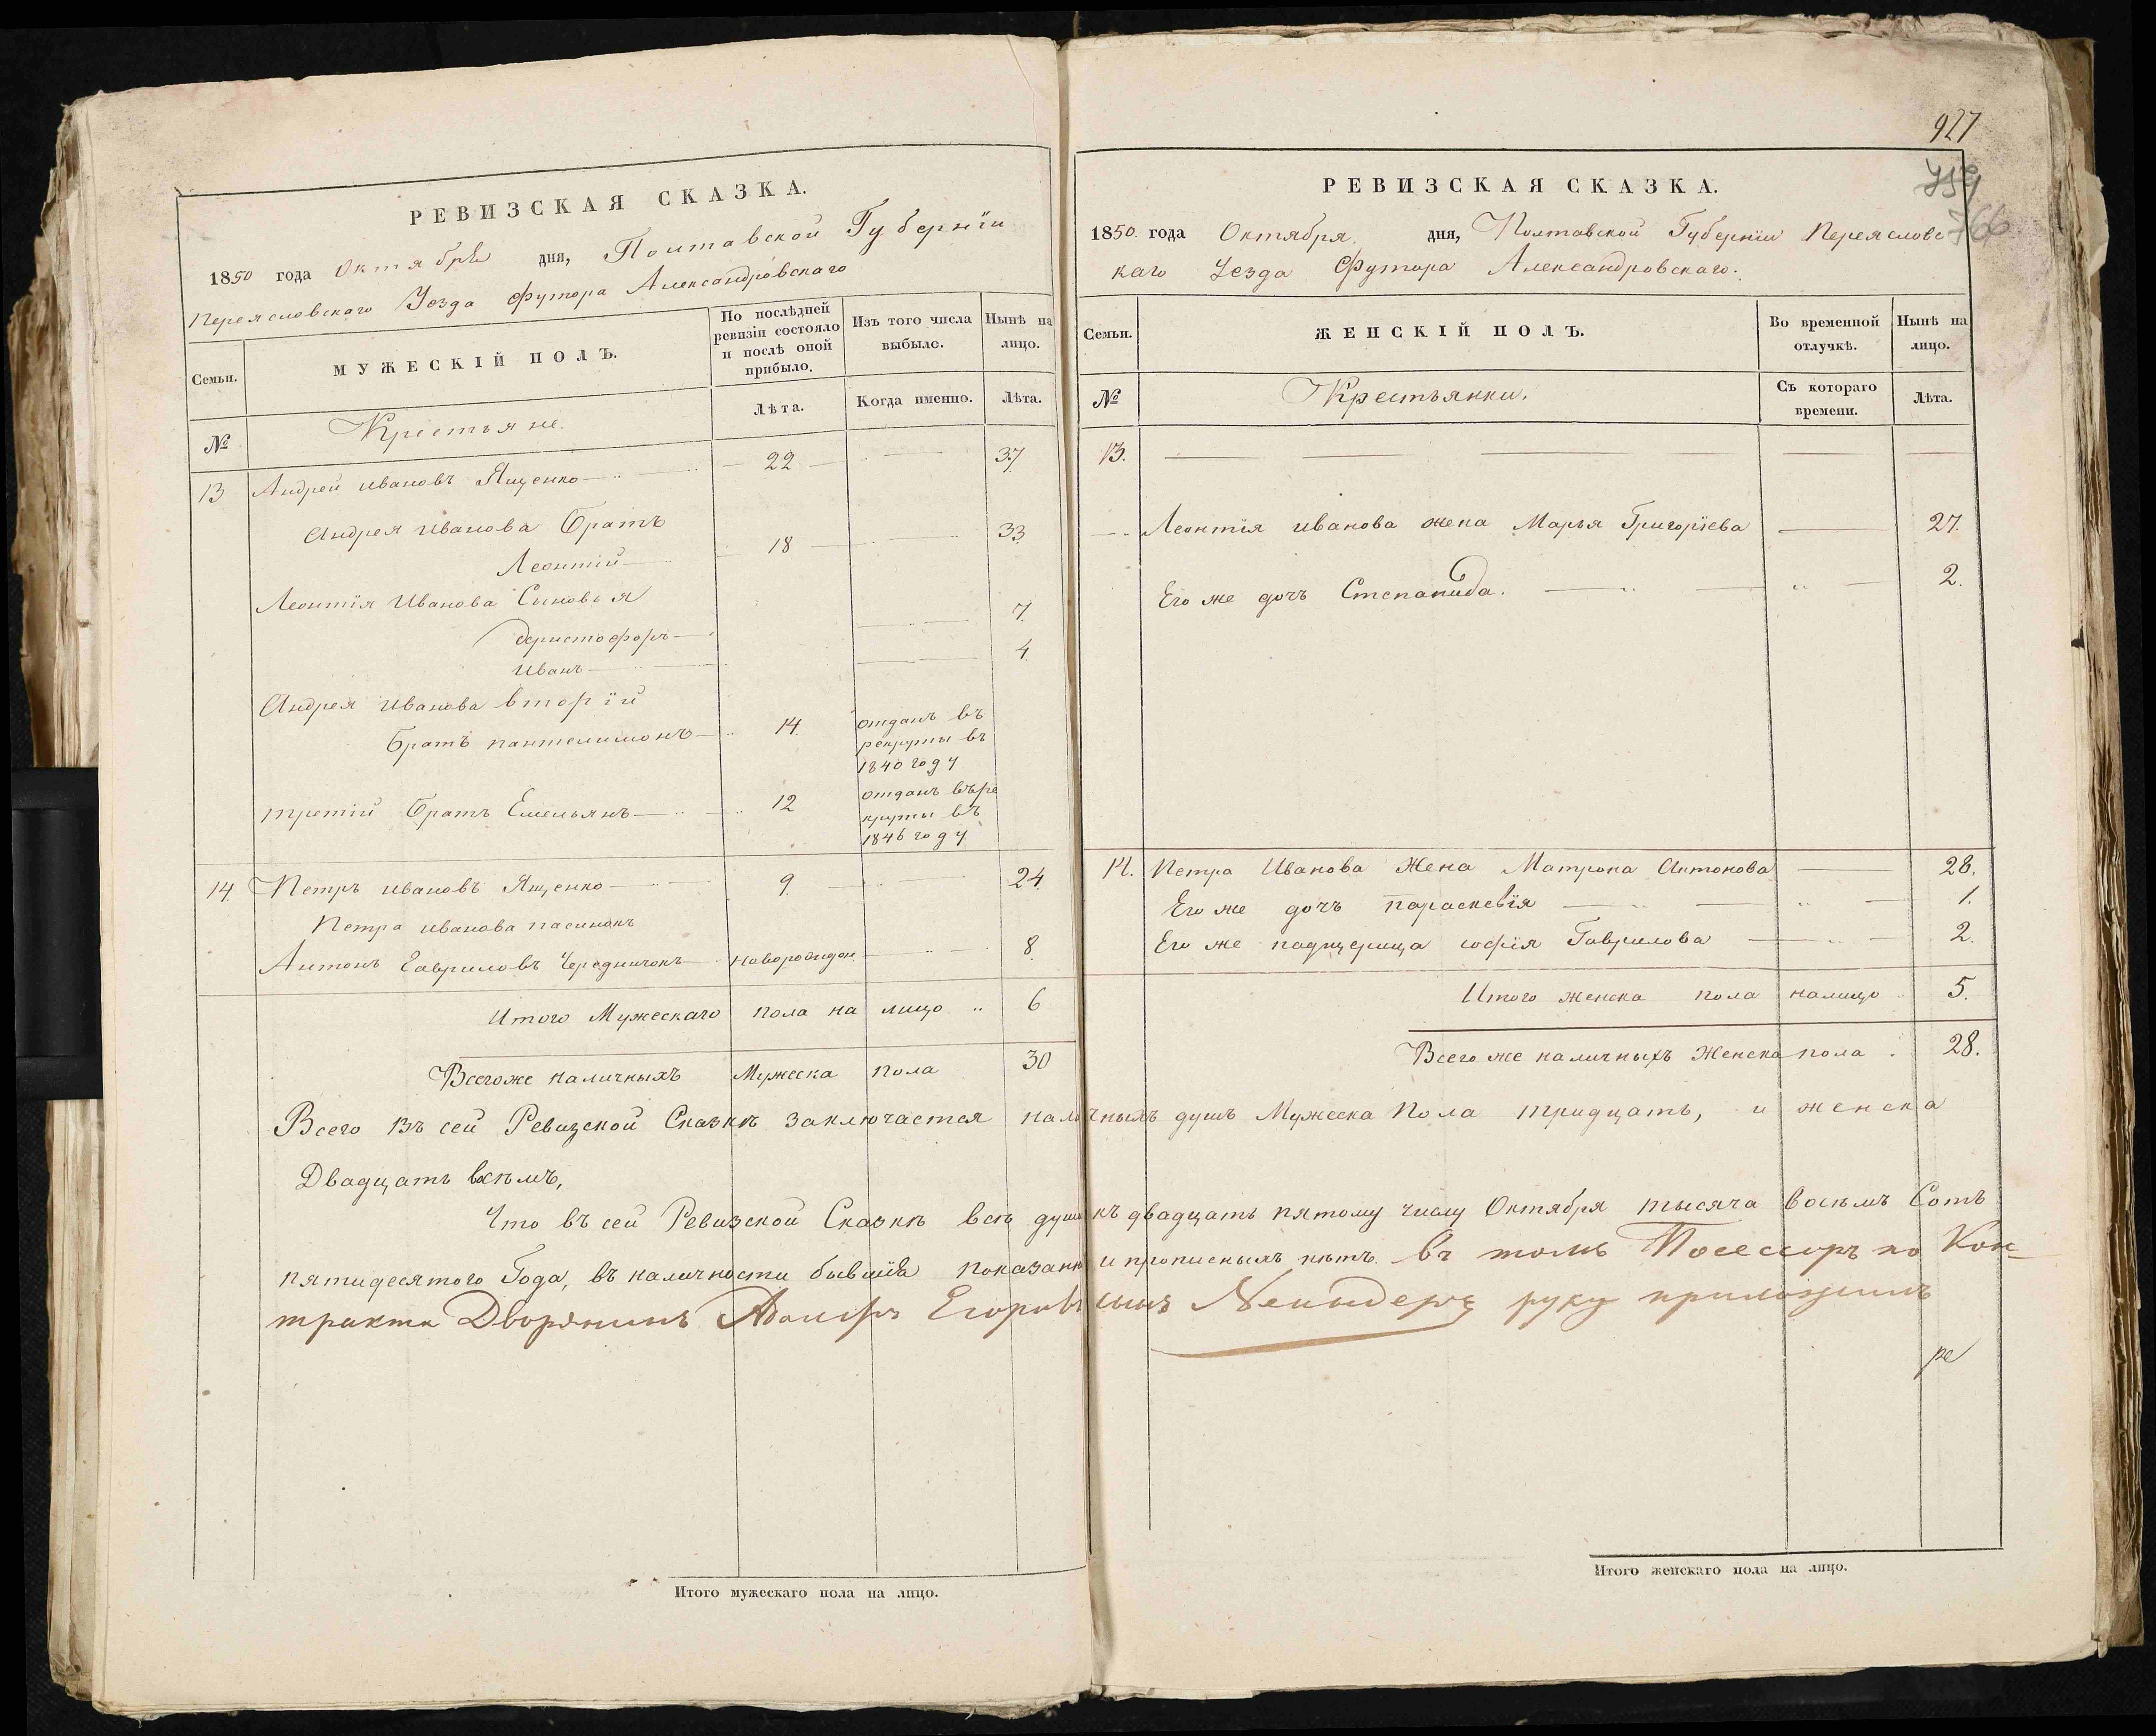 РЕВИЗСКАЯ СКАЗКА.
1850 года Октября дня, Полтавской Губернїи
Переясловскаго Уезда Футора Александровскаго
Семьи.
МУЖЕСКІЙ ПОЛЪ.
По послѣдней ревизіи состояло и послѣ оной прибыло.
Изъ того числа выбыло.
Нынѣ на лицо.
№
Крестьяне.
Лѣта.
Когда именно.
Лѣта.
13 Андрей ивановъ Ященко 22 37
Андрея иванова Братъ
Леонтій 18 33
Леонтія Иванова Сыновья
Христофоръ 7.
Иванъ 4
Андрея Иванова вторїй
Братъ пантелимонъ 14. отданъ въ
рекруты въ
1840 году
третій Братъ Емельянъ 12 отданъ въ ре
круты въ
1846 году
14 Петръ ивановъ Ященко 9. 24.
Петра иванова пасинокъ
Антонъ Гавриловъ Чередничокъ новорожден 8.
Итого Мужескаго пола на лицо 6
Всегоже наличныхъ Мужеска пола 30
927
766
РЕВИЗСКАЯ СКАЗКА.
1850. года Октября дня, Полтавской Губернїи Переясловс
каго Уезда Футора Александровскаго.
Семьи.
ЖЕНСКІЙ ПОЛЪ.
Во временной отлучкѣ.
Нынѣ на лицо.
№
Крестьянки.
Съ котораго времени.
Лѣта.
13.
Леонтїя иванова жена Марья Григорїева 27.
Его же дочъ Степанида. 2.
14. Петра Иванова Жена Матрона Антонова 28.
Его же дочъ параскевїя 1.
Его же падщерица софїя Гаврилова 2.
Итого женска пола налицо 5.
Всего же наличныхъ Женска пола 28.
Всего въ сей Ревизской Сказкѣ заключается наличныхъ душъ Мужеска Пола тридцать, и женска
Двадцать восѣмъ,
Что въ сей Ревизской Сказкѣ всѣ души къ двадцать пятому числу Октября тысяча восѣмъ Сотъ
пятидесятого Года, въ наличности бывшїа показаны и прописныхъ нѣтъ. въ томъ Посессоръ по Кон-
тракта Дворянинъ Адольфъ Егоровъ сынъ руку приложилъ
ре
Итого мужескаго пола на лицо.
Итого женскаго пола на лицо.